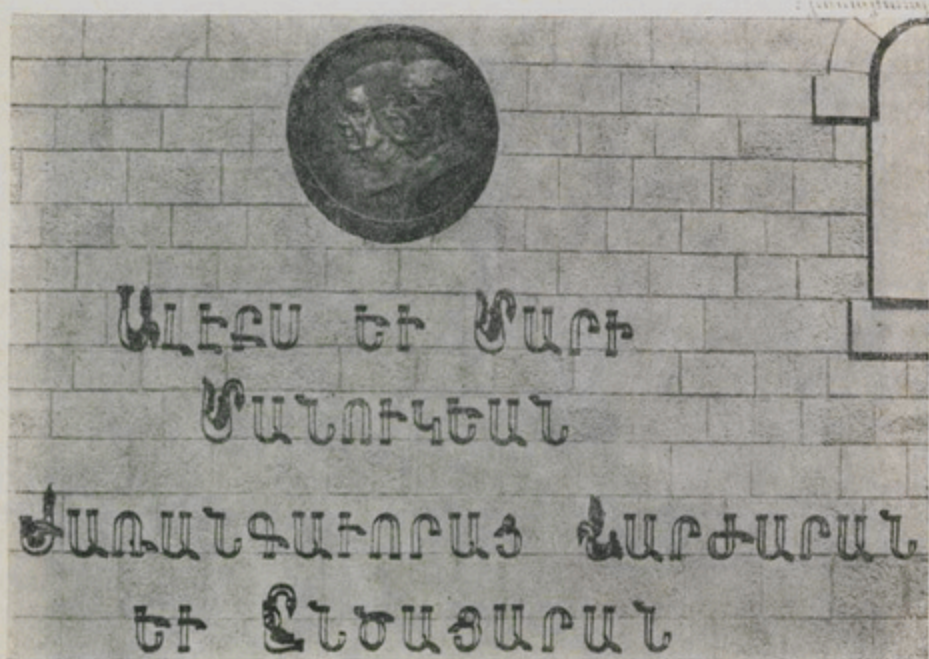 ԱԼԷՔՍ ԵՒ ՄԱՐԻ
ՄԱՆՈՒԿԵԱՆ
ԺԱՌԱՆԳԱՒՈՐԱՑ ՎԱՐԺԱՐԱՆ
ԵՒ ԸՆԾԱՅԱՐԱՆ